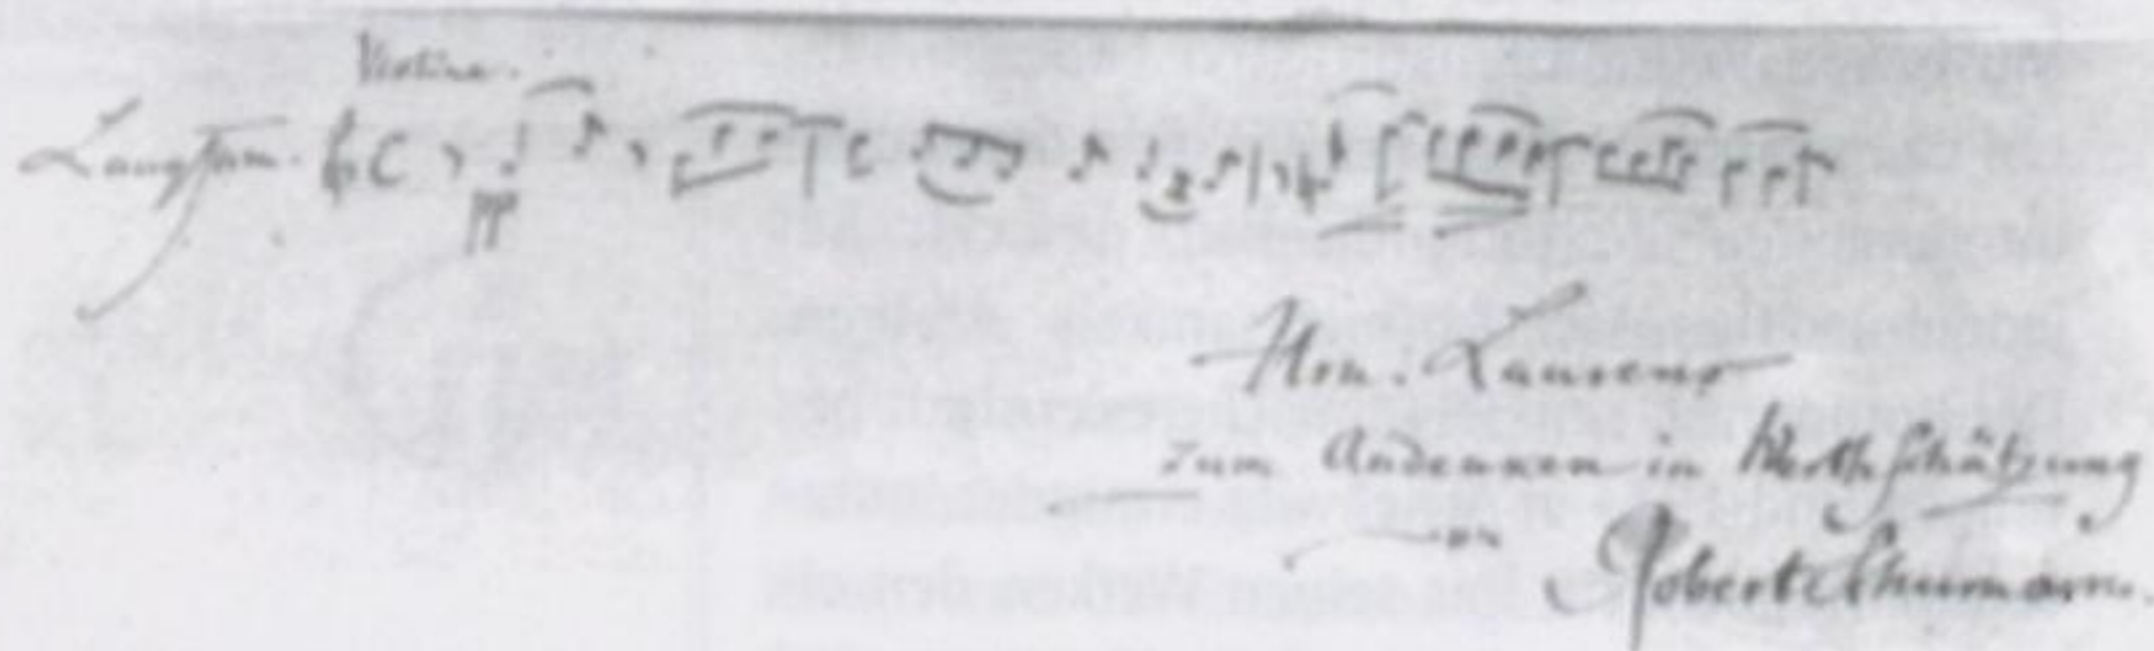 Violine.
Langsam. pp
Hrn. Laurens
zum Andenken in Werthschätzung
von
Robert Schumann.